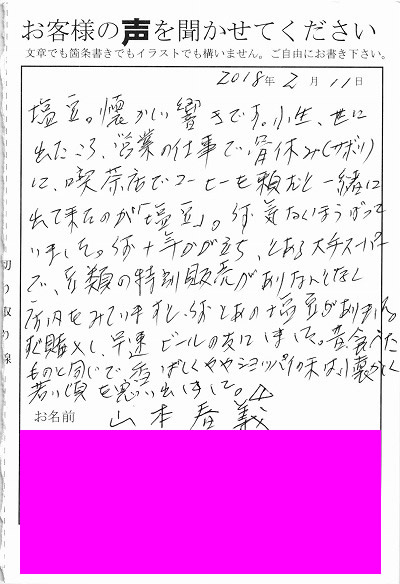 お客様の声を聞かせてください
文章でも箇条書きでもイラストでも構いません。ご自由にお書き下さい。
2018年 2月 11日
塩豆。懐かしい響きです。小生、世に
出たころ、営業の仕事で骨休み(サボリ)
に、喫茶店でコーヒーを頼むと一緒に
出て来たのが「塩豆」。何気なくほうばって
いました。何十年かが立ち、とある大手スーパー
で、豆類の特別販売がありなんとなく
店内をみていますと、何とあの塩豆がありました。
すぐ購入し、早速ビールの友にしました。昔食べた
ものと同じで香ばしくややショッパイ味はい懐かしく
若い頃を思い出しました。
お名前 山本春義
切り取り線